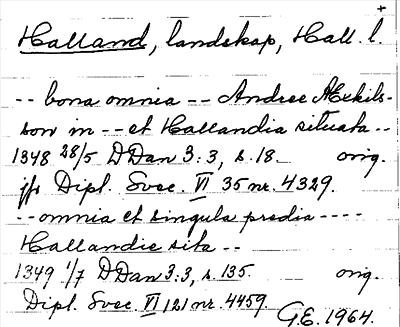 +
Halland, landskap, Hall. l.
-- bona omnia -- Andree Mkils-
son in -- et Hallandia situata --
1348 28/5 DDan 3:3, s. 18. orig.
jfr Dipl. Svec. VI 35 nr. 4329.
-- omnia et singula predia ----
Hallandie sita --
1349 1/7 DDan 3:3, s. 135. orig.
Dipl. Svec. VI 121 nr. 4459.
G.E. 1964.